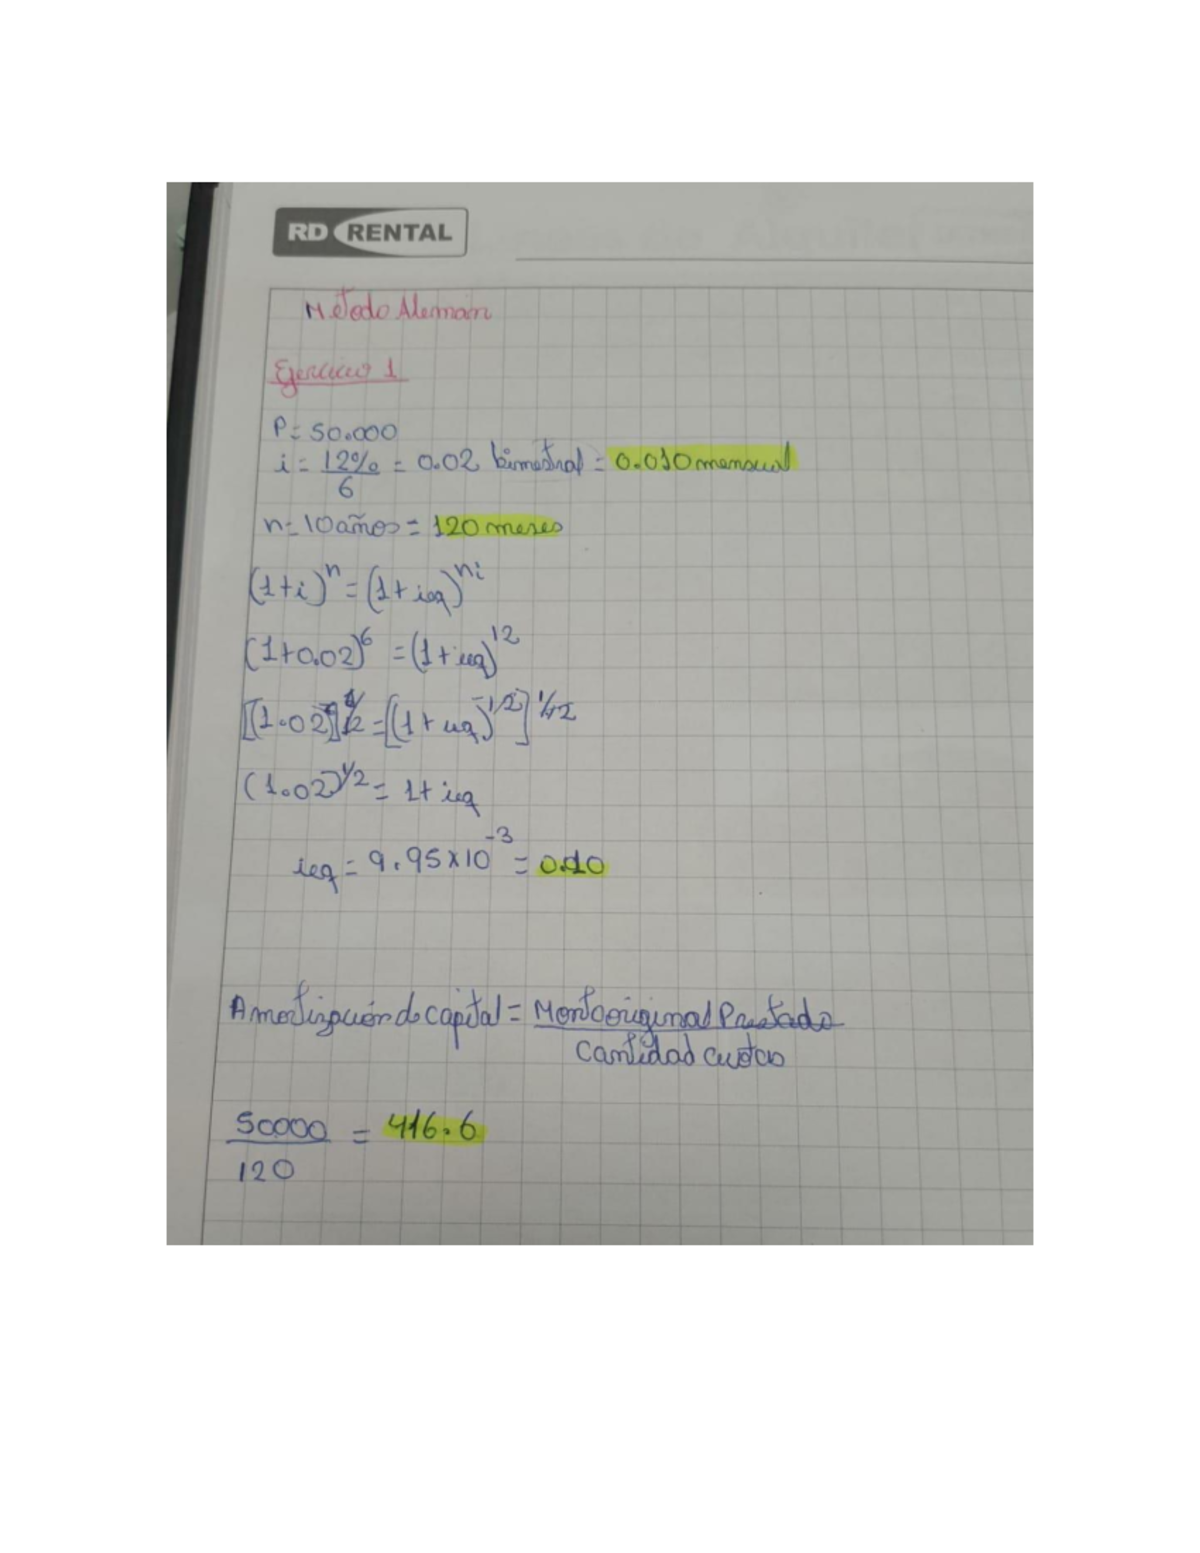 RD RENTAL
Método Alemán
Ejercicio 1
P = 50.000
i = 12% / 6 = 0.02 bimestral = 0.010 mensual
n = 10 años = 120 meses
(1+i)^n = (1+ieq)^ni
(1+0.02)^6 = (1+ieq)^12
(1.02) = [(1+ieq)^12]^1/12
(1.02)^1/2 = 1+ieq
ieq = 9.95x10^-3 = 0.10
Amortización de capital = Monto original Prestado
Cantidad cuotas
50000 = 416.6
120